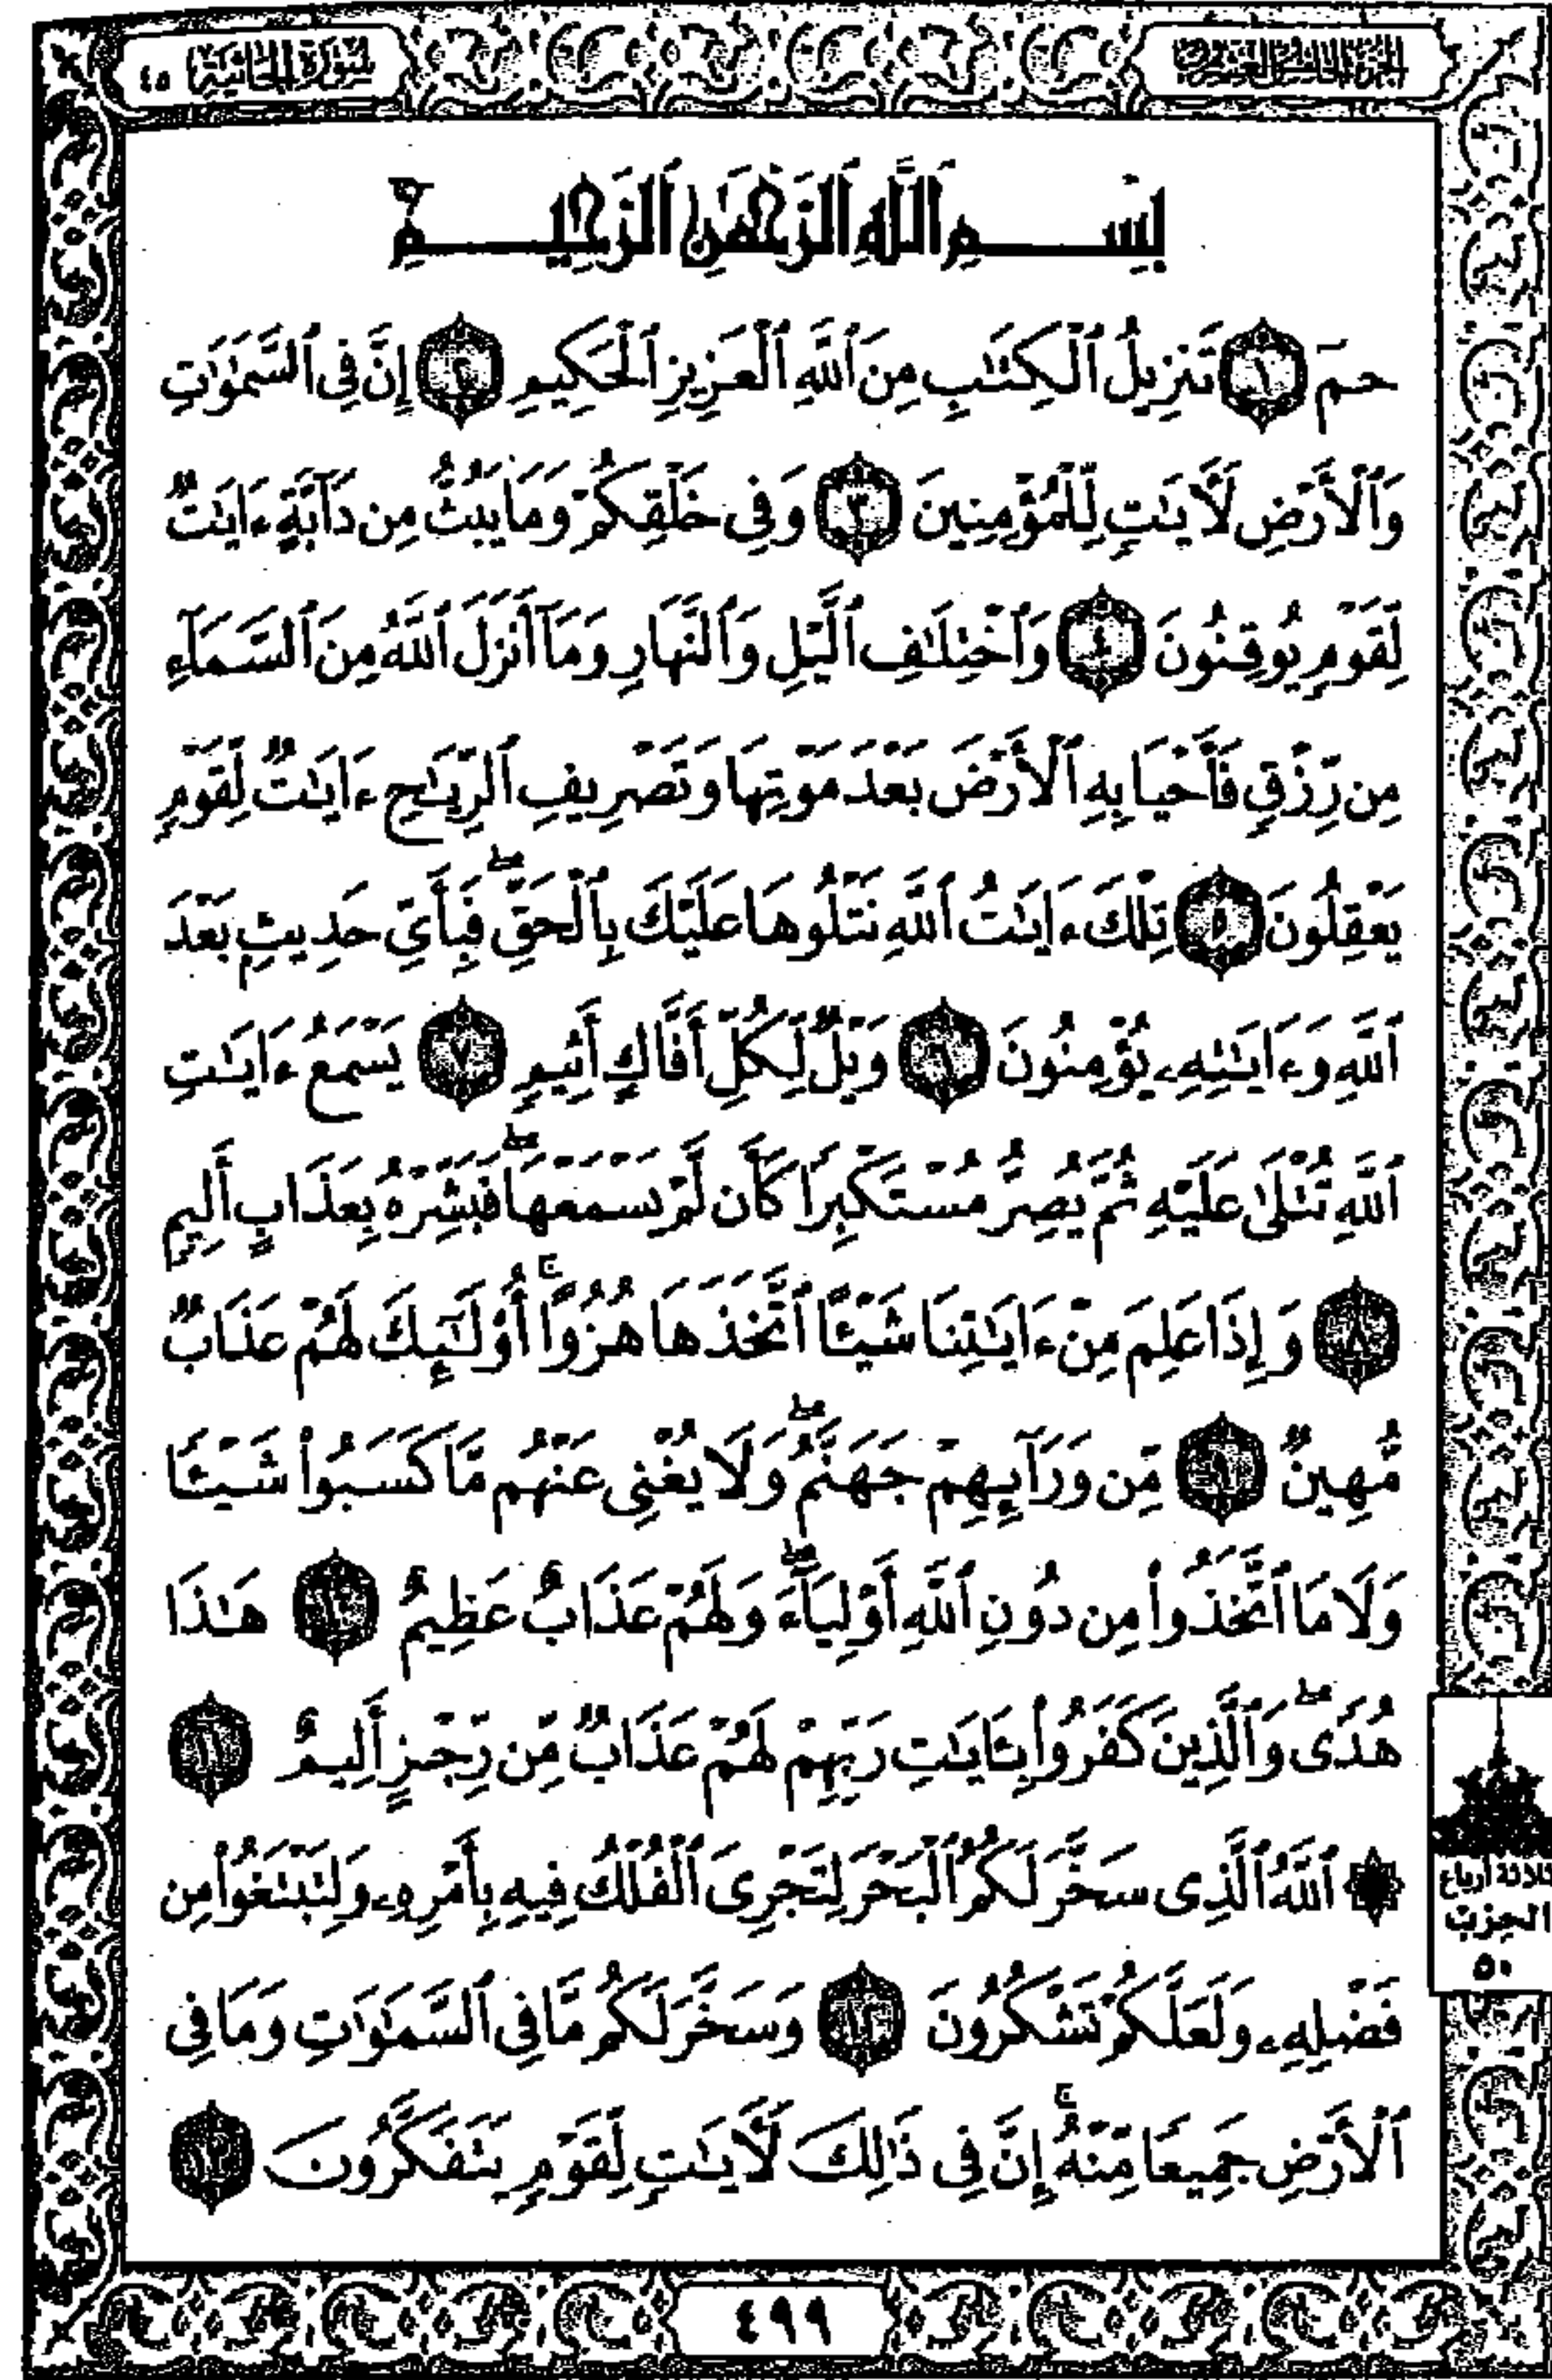 الجزء الخامس والعشرون
سورة الجاثية ٤٥
بِسْمِ ٱللَّهِ ٱلرَّحْمَٰنِ ٱلرَّحِيمِ
حمٓ ١ تَنزِيلُ ٱلْكِتَٰبِ مِنَ ٱللَّهِ ٱلْعَزِيزِ ٱلْحَكِيمِ ٢ إِنَّ فِى ٱلسَّمَٰوَٰتِ
وَٱلْأَرْضِ لَءَايَٰتٍ لِّلْمُؤْمِنِينَ ٣ وَفِى خَلْقِكُمْ وَمَا يَبُثُّ مِن دَآبَّةٍ ءَايَٰتٌ
لِّقَوْمٍ يُوقِنُونَ ٤ وَٱخْتِلَٰفِ ٱلَّيْلِ وَٱلنَّهَارِ وَمَآ أَنزَلَ ٱللَّهُ مِنَ ٱلسَّمَآءِ
مِن رِّزْقٍ فَأَحْيَا بِهِ ٱلْأَرْضَ بَعْدَ مَوْتِهَا وَتَصْرِيفِ ٱلرِّيَٰحِ ءَايَٰتٌ لِّقَوْمٍ
يَعْقِلُونَ ٥ تِلْكَ ءَايَٰتُ ٱللَّهِ نَتْلُوهَا عَلَيْكَ بِٱلْحَقِّ ۖ فَبِأَىِّ حَدِيثٍۭ بَعْدَ
ٱللَّهِ وَءَايَٰتِهِۦ يُؤْمِنُونَ ٦ وَيْلٌ لِّكُلِّ أَفَّاكٍ أَثِيمٍ ٧ يَسْمَعُ ءَايَٰتِ
ٱللَّهِ تُتْلَىٰ عَلَيْهِ ثُمَّ يُصِرُّ مُسْتَكْبِرًا كَأَن لَّمْ يَسْمَعْهَا ۖ فَبَشِّرْهُ بِعَذَابٍ أَلِيمٍ
٨ وَإِذَا عَلِمَ مِنْ ءَايَٰتِنَا شَيْـًٔا ٱتَّخَذَهَا هُزُوًا ۚ أُو۟لَٰٓئِكَ لَهُمْ عَذَابٌ
مُّهِينٌ ٩ مِّن وَرَآئِهِمْ جَهَنَّمُ ۖ وَلَا يُغْنِى عَنْهُم مَّا كَسَبُوا۟ شَيْـًٔا
وَلَا مَا ٱتَّخَذُوا۟ مِن دُونِ ٱللَّهِ أَوْلِيَآءَ ۖ وَلَهُمْ عَذَابٌ عَظِيمٌ ١٠ هَٰذَا
هُدًى ۖ وَٱلَّذِينَ كَفَرُوا۟ بِـَٔايَٰتِ رَبِّهِمْ لَهُمْ عَذَابٌ مِّن رِّجْزٍ أَلِيمٌ ١١
۞ ٱللَّهُ ٱلَّذِى سَخَّرَ لَكُمُ ٱلْبَحْرَ لِتَجْرِىَ ٱلْفُلْكُ فِيهِ بِأَمْرِهِۦ وَلِتَبْتَغُوا۟ مِن
فَضْلِهِۦ وَلَعَلَّكُمْ تَشْكُرُونَ ١٢ وَسَخَّرَ لَكُم مَّا فِى ٱلسَّمَٰوَٰتِ وَمَا فِى
ٱلْأَرْضِ جَمِيعًا مِّنْهُ ۚ إِنَّ فِى ذَٰلِكَ لَءَايَٰتٍ لِّقَوْمٍ يَتَفَكَّرُونَ ١٣
ثلاثة أرباع
الحزب
٥٠
٤٩٩